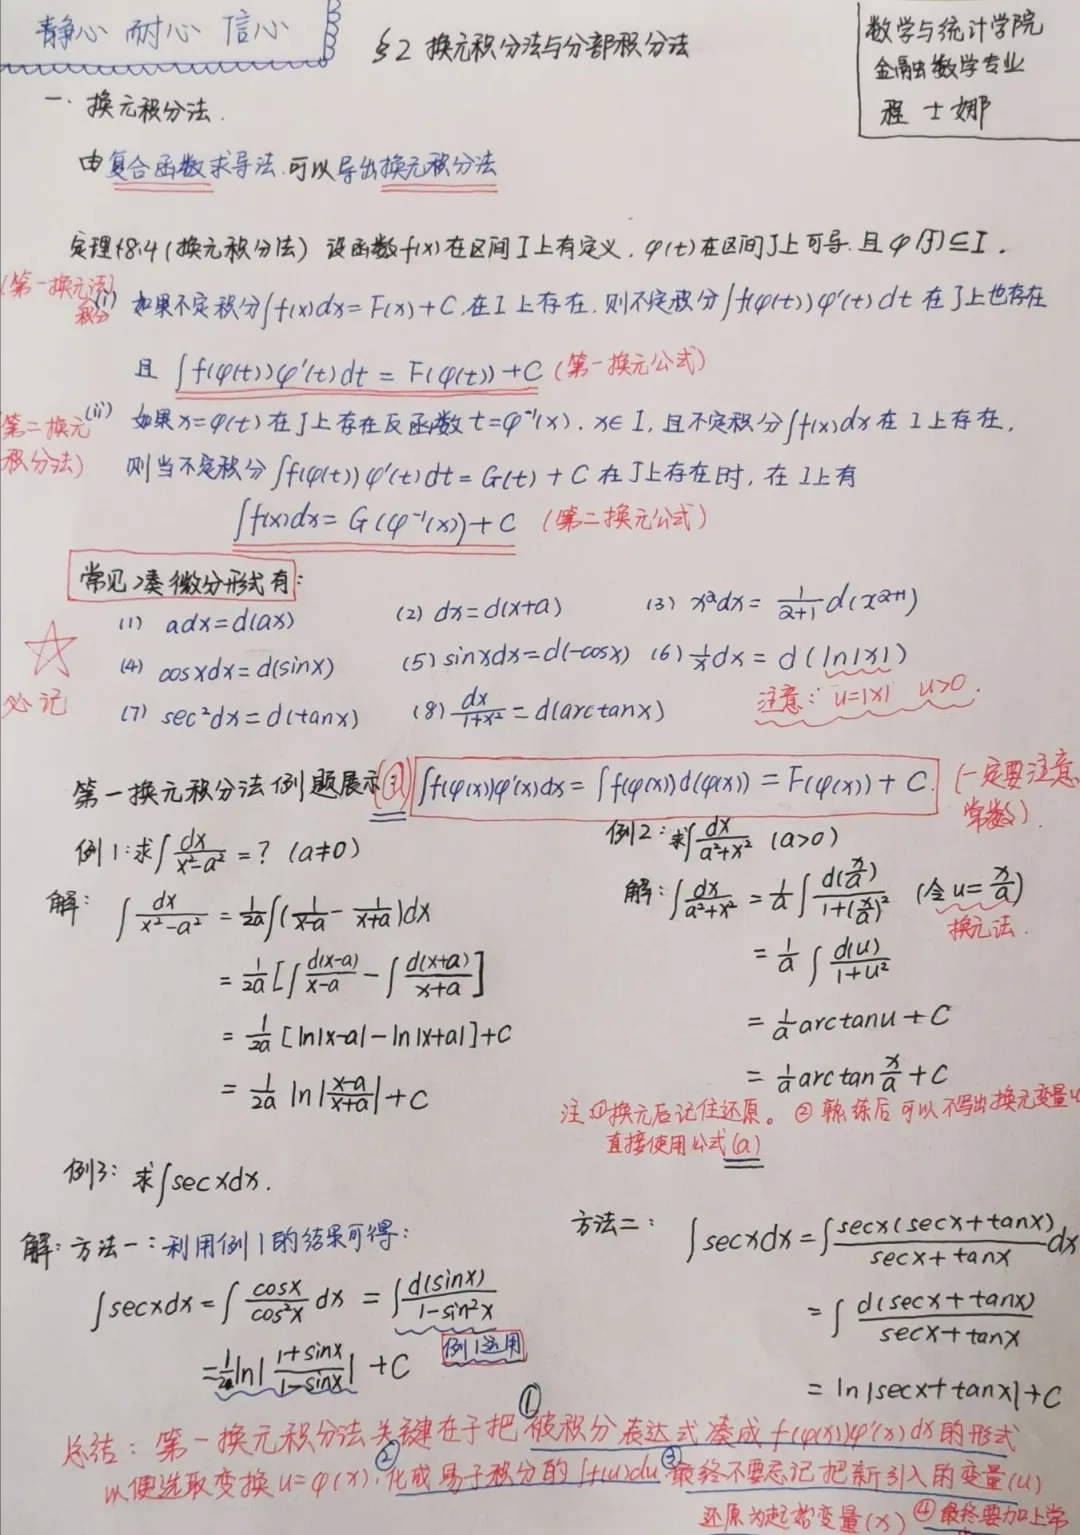 静心 耐心 信心
§2 换元积分法与分部积分法
数学与统计学院
金融数学专业
程士娜
一. 换元积分法.
由复合函数求导法,可以导出换元积分法
定理8.4(换元积分法) 设函数f(x)在区间I上有定义, φ(t)在区间J上可导.且φ(J)⊆I.
(第一换元法)
积分
(i) 如果不定积分∫f(x)dx=F(x)+C,在I上存在.则不定积分∫f(φ(t))φ'(t)dt在J上也存在
且 ∫f(φ(t))φ'(t)dt = F(φ(t))+C (第一换元公式)
(第二换元
积分法)
(ii) 如果x=φ(t)在J上存在反函数t=φ⁻¹(x). x∈I, 且不定积分∫f(x)dx在I上存在,
则当不定积分∫f(φ(t))φ'(t)dt=G(t)+C在J上存在时, 在I上有
∫f(x)dx=G(φ⁻¹(x))+C (第二换元公式)
常见凑微分形式有:
(1) adx=d(ax) (2) dx=d(x+a) (3) x^a dx = 1/(a+1) d(x^(a+1))
(4) cosxdx=d(sinx) (5) sinxdx=d(-cosx) (6) 1/x dx = d(ln|x|)
必记
注意: u=|x| u>0.
(7) sec²dx=d(tanx) (8) dx/(1+x²) = d(arctanx)
第一换元积分法例题展示 ∫f(φ(x))φ'(x)dx = ∫f(φ(x))d(φ(x)) = F(φ(x)) + C. (一定要注意
常数).
例1:求∫dx/(x²-a²) =? (a≠0)
解: ∫dx/(x²-a²) = 1/2a ∫(1/(x-a) - 1/(x+a))dx
= 1/2a [∫d(x-a)/(x-a) - ∫d(x+a)/(x+a)]
= 1/2a [ln|x-a|-ln|x+a|]+C
= 1/2a ln|(x-a)/(x+a)|+C
例2:求∫dx/(a²+x²) (a>0)
解: ∫dx/(a²+x²) = 1/a ∫d(x/a)/(1+(x/a)²) (令u=x/a)
换元法.
= 1/a ∫d(u)/(1+u²)
= 1/a arctanu + C
= 1/a arctan x/a + C
注 ①换元后记住还原。 ②熟练后可以不写出换元变量u
直接使用公式(a)
例3: 求∫secxdx.
解: 方法一: 利用例1的结果可得:
∫secxdx = ∫cosx/cos²x dx = ∫d(sinx)/(1-sin²x)
例1运用
= 1/2 ln|(1+sinx)/(1-sinx)| +C
方法二: ∫secxdx = ∫secx(secx+tanx)/(secx+tanx) dx
= ∫d(secx+tanx)/(secx+tanx)
= ln|secx+tanx|+C
总结: 第一换元积分法关键在于把①被积分表达式凑成f(φ(x))φ'(x)dx的形式
以便选取变换u=φ(x),②化成易于积分的∫f(u)du ③最终不要忘记把新引入的变量(u)
还原为起始变量(x) ④最终要加上常